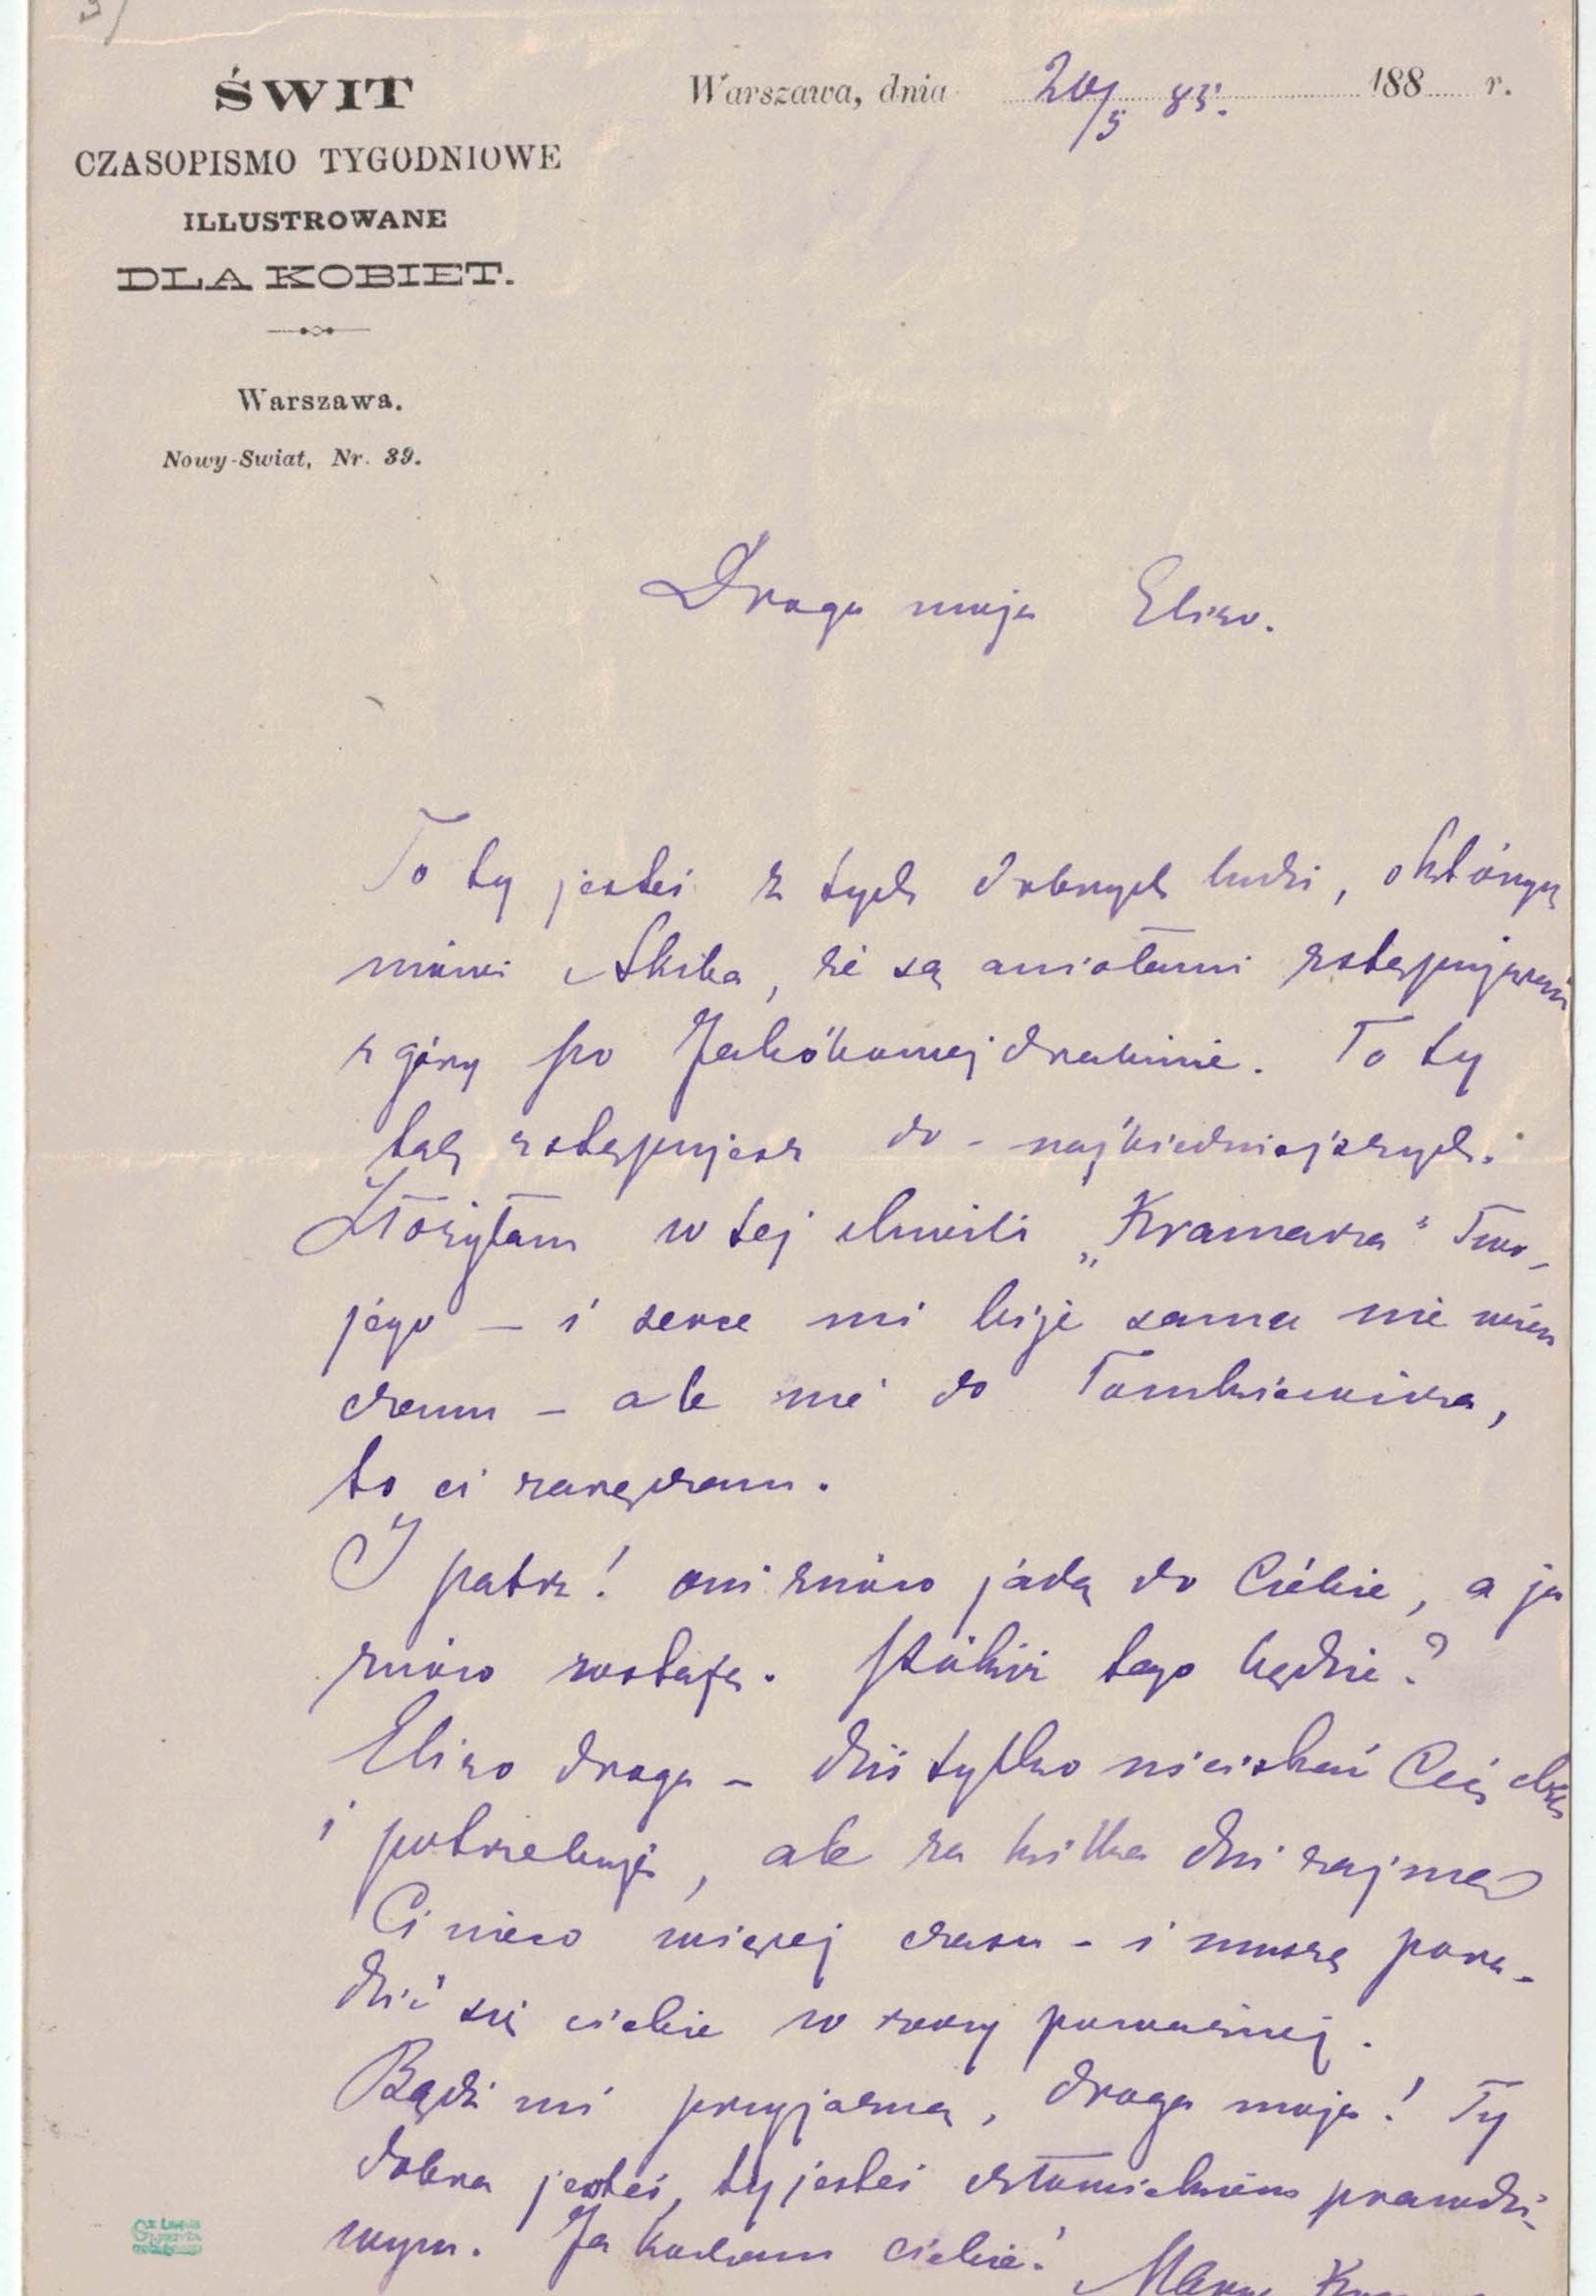 ŚWIT
CZASOPISMO TYGODNIOWE
ILLUSTROWANE
DLA KOBIET.
Warszawa.
Nowy-Swiat, Nr. 39.
Warszawa, dnia 20/5 85. 188 r.
Droga moja Elizo.
To ty jesteś z tych dobrych ludzi, o których
mówi Akiba, że są aniołami zstępującemi
z góry po Jakóbowej drabinie. To ty
tak zstępujesz do - najbiedniejszych.
Złożyłam w tej chwili „Kramarza" Two-
jego — i serce mi bije sama nie wiem
czemu - ale nie do Tomkiewicza,
to ci zaręczam.
I patrz! oni znów jadą do Ciebie, a ja
znów zostaję. Pókiż tego będzie?
Elizo droga - dziś tylko uściskać Cię chcę
i potrzebuję, ale za kilka dni zajmę
Ci nieco więcej czasu - i muszę pora-
dzić się ciebie w rzeczy poważnej.
Bądź mi przyjazną, droga moja! Ty
dobra jesteś, ty jesteś człowiekiem prawdzi-
wym. Ja kocham ciebie!